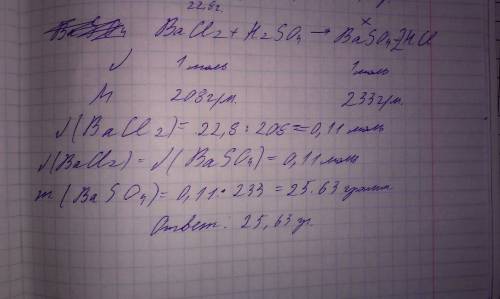 22.8г.
x
BaCl2 + H2SO4 → BaSO4 + 2HCl
√ 1 моль 1 моль
M 208 гм. 233 гм.
√(BaCl2) = 22,8 : 208 = 0,11 моль
√(BaCl2) = √(BaSO4) = 0,11 моль
m(BaSO4) = 0,11 • 233 = 25.63 грамм
Ответ: 25,63 гр.